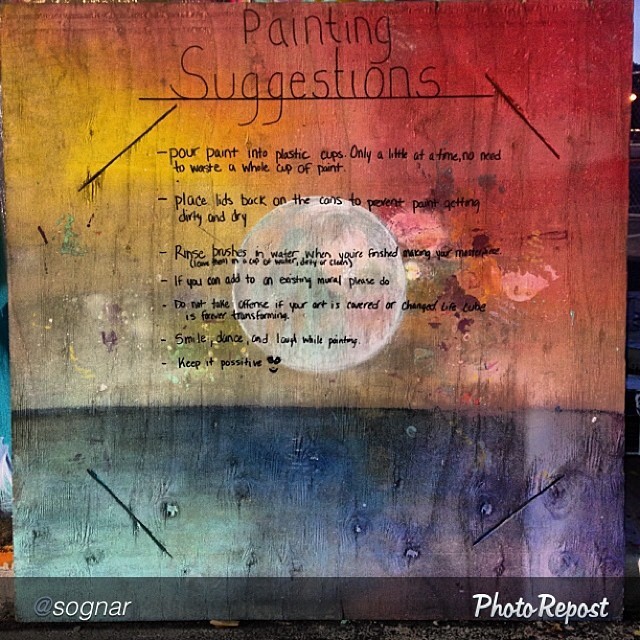 Painting
Suggestions
- pour paint into plastic cups. Only a little at a time, no need
to waste a whole cup of paint.
- place lids back on the cans to prevent paint getting
dirty and dry
- Rinse brushes in water when you're finished making your masterpiece
(leave them in a cup of water, dirty or clean)
- If you can add to an existing mural please do
- Do not take offense if your art is covered or changed. Life, Luke
is forever transforming.
- Smile, dance, and laugh while painting.
- Keep it possitive
@sognar
PhotoRepost